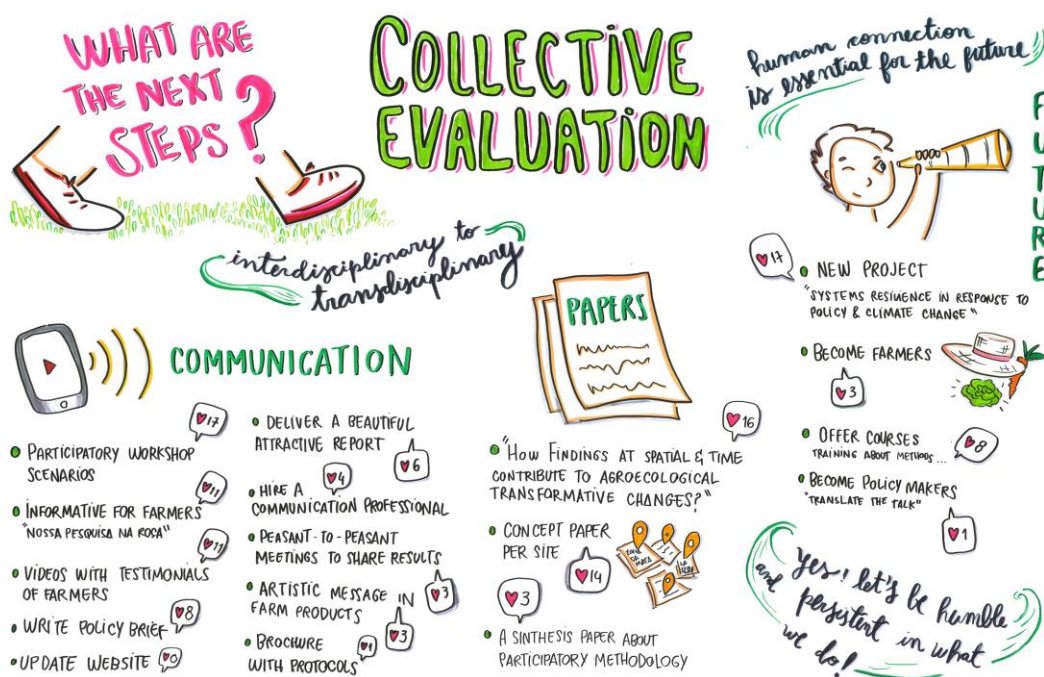 WHAT ARE
THE NEXT
STEPS?
COLLECTIVE
EVALUATION
human connection
is essential for the future
FUTURE
interdisciplinary to
transdisciplinary
COMMUNICATION
17
PARTICIPATORY WORKSHOP
SCENARIOS
11
INFORMATIVE FOR FARMERS
"NOSSA PESQUISA NA ROÇA"
11
VIDEOS WITH TESTIMONIALS
OF FARMERS
8
WRITE POLICY BRIEF
UPDATE WEBSITE 0
DELIVER A BEAUTIFUL
ATTRACTIVE REPORT
6
4
HIRE A
COMMUNICATION PROFESSIONAL
PEASANT-TO-PEASANT
MEETINGS TO SHARE RESULTS
3
ARTISTIC MESSAGE IN
FARM PRODUCTS
3
BROCHURE
WITH PROTOCOLS
1
PAPERS
16
"HOW FINDINGS AT SPATIAL & TIME
CONTRIBUTE TO AGROECOLOGICAL
TRANSFORMATIVE CHANGES?"
CONCEPT PAPER
PER SITE
14
ZONA
DA
MATA
3
A SINTHESIS PAPER ABOUT
PARTICIPATORY METHODOLOGY
17
NEW PROJECT
"SYSTEMS RESILIENCE IN RESPONSE TO
POLICY & CLIMATE CHANGE"
BECOME FARMERS
3
OFFER COURSES
TRAINING ABOUT METHODS...
8
BECOME POLICY MAKERS
"TRANSLATE THE TALK"
1
yes! let's be humble
and persistent in what
we do!